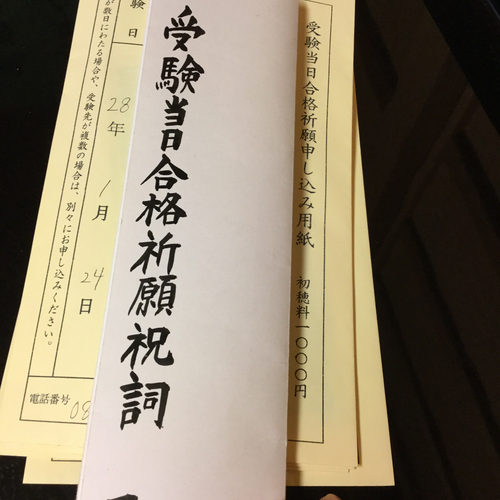 受験当日合格祈願申し込み用紙
初穂料一〇〇〇円
受験当日合格祈願祝詞
験日
28年1月24日
が数日にわたる場合や、受験先が複数の場合は、別々にお申し込みください。
電話番号 08